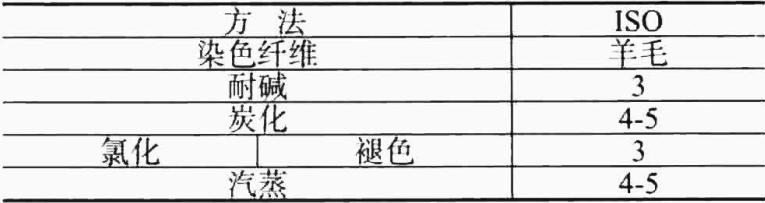 方 法 ISO
染色纤维 羊毛
耐碱 3
炭化 4-5
氯化 褪色 3
汽蒸 4-5